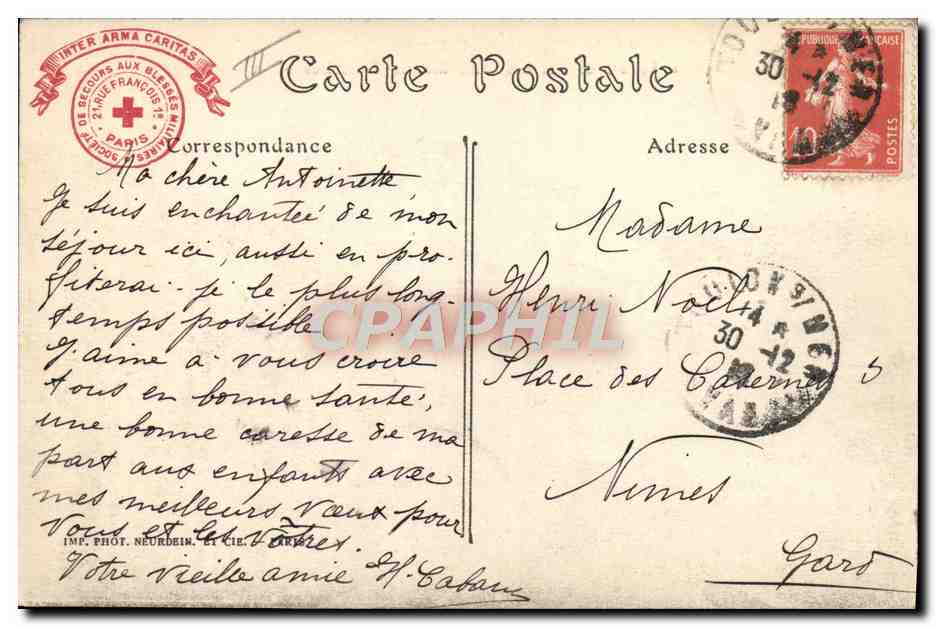 INTER ARMA CARITAS
SOCIÉTÉ DE SECOURS AUX BLESSÉS MILITAIRES
21, RUE FRANÇOIS 1er
PARIS
III
Carte Postale
RÉPUBLIQUE FRANÇAISE
10
POSTES
30 -12
Correspondance
Ma chère Antoinette
Je suis enchanteé de mon
séjour ici, aussi en pro-
fiterai-je le plus long-
temps possible
J'aime à vous croire
tous en bonne santé,
une bonne caresse de ma
part aux enfants avec
mes meilleurs vœux pour
vous et les vôtres.
IMP. PHOT. NEURDEIN. ET CIE. - PARIS
Votre vieille amie H. Caban
Adresse
Madame
Henri Noël
Place des Casernes 5
Nimes
Gard
TOULON S/ MER
14
30 -12
VAR
CPAPHIL